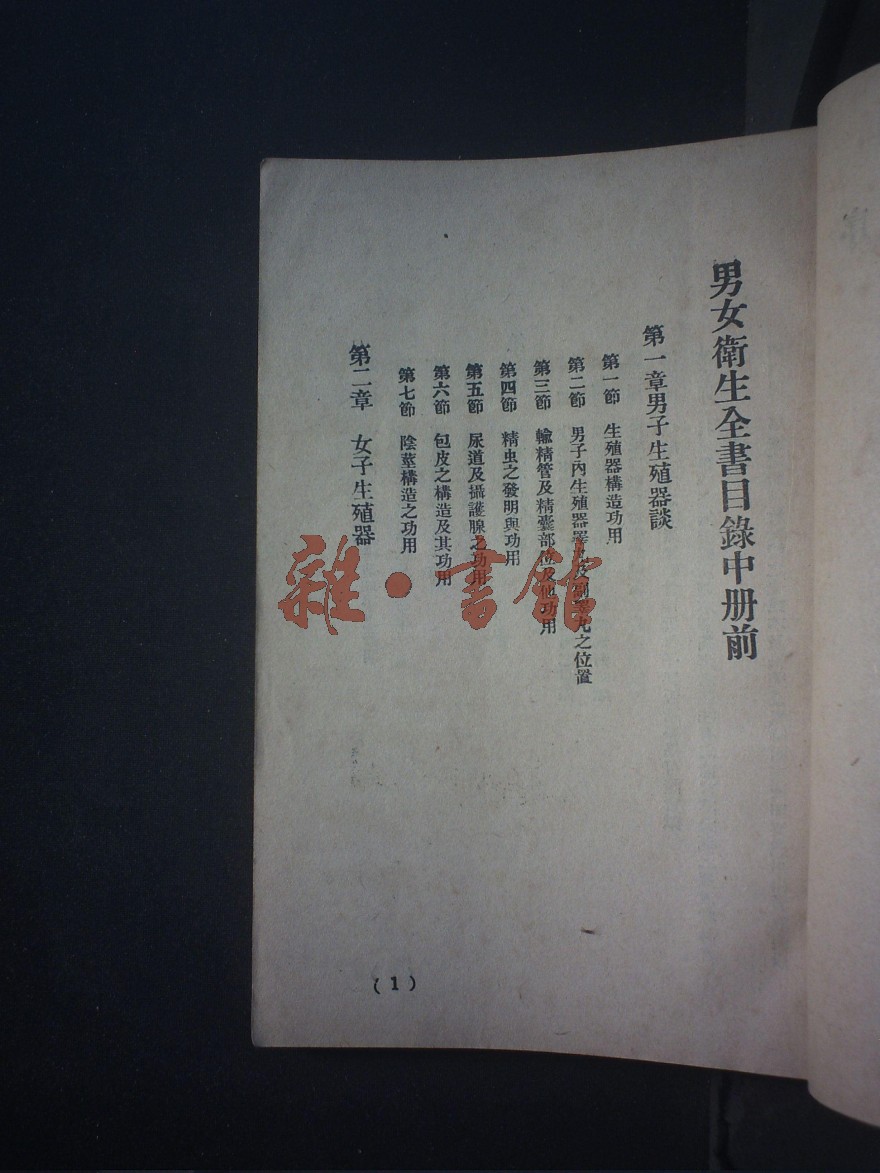 男女衛生全書目錄中册前
第一章男子生殖器談
第一節 生殖器構造功用
第二節 男子內生殖器睪丸及副睪丸之位置
第三節 輸精管及精囊部位及他功用
第四節 精虫之發明與功用
第五節 尿道及攝護腺之功用
第六節 包皮之構造及其功用
第七節 陰莖構造之功用
第二章 女子生殖器
(1)
雜·書館